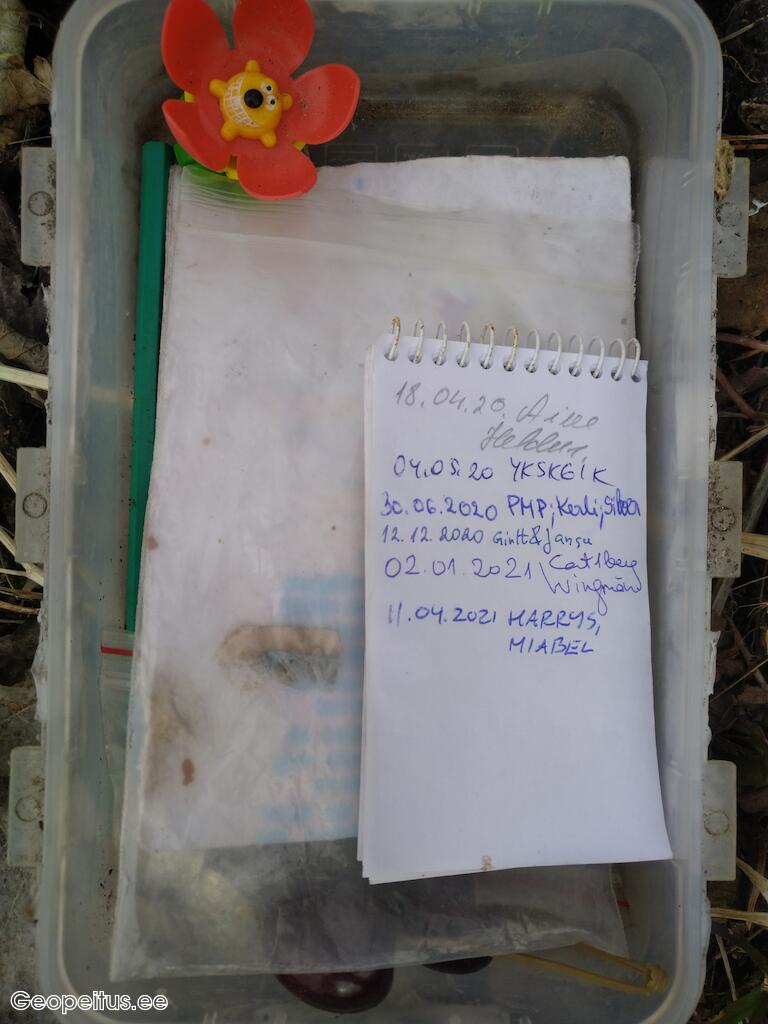 18.04.20. Aive
04.05.20 YKSKÕIK
30.06.2020 PMP; Kerli;
12.12.2020 Gintt&Jansu
02.01.2021 \ Catlberg
Wingman
11.04.2021 HARRYS,
MIABEL
Geopeitus.ee